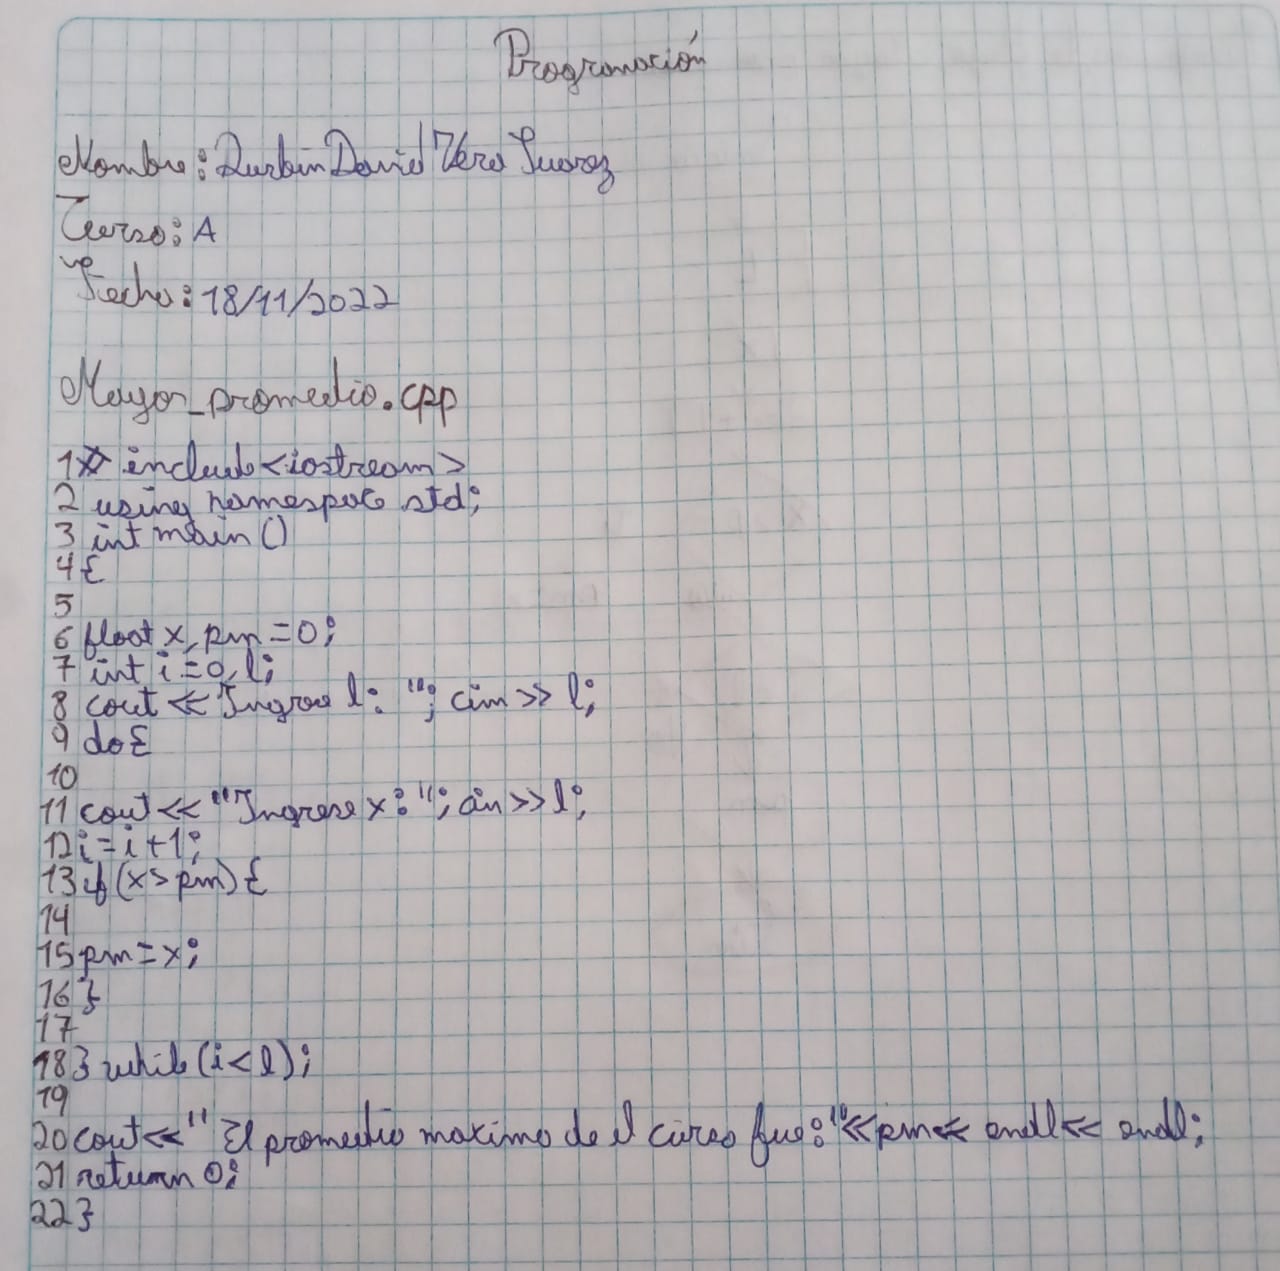 Programación
Nombre: Durbin David Vera Suarez
Curso: A
Fecha: 18/11/2022
Mayor_promedio.cpp
1 # include <iostream>
2 using namespace std;
3 int main ()
4 {
5
6 float x, pm = 0;
7 int i = 0, l;
8 cout << Ingrese l: "; cin >> l;
9 do {
10
11 cout << "Ingrese x: "; cin >> l;
12 i = i + 1;
13 if (x > pm) {
14
15 pm = x;
16 }
17
18 } while (i < l);
19
20 cout << " El promedio maximo de el curso fue: " << pm << endl << endl;
21 return 0;
22 }